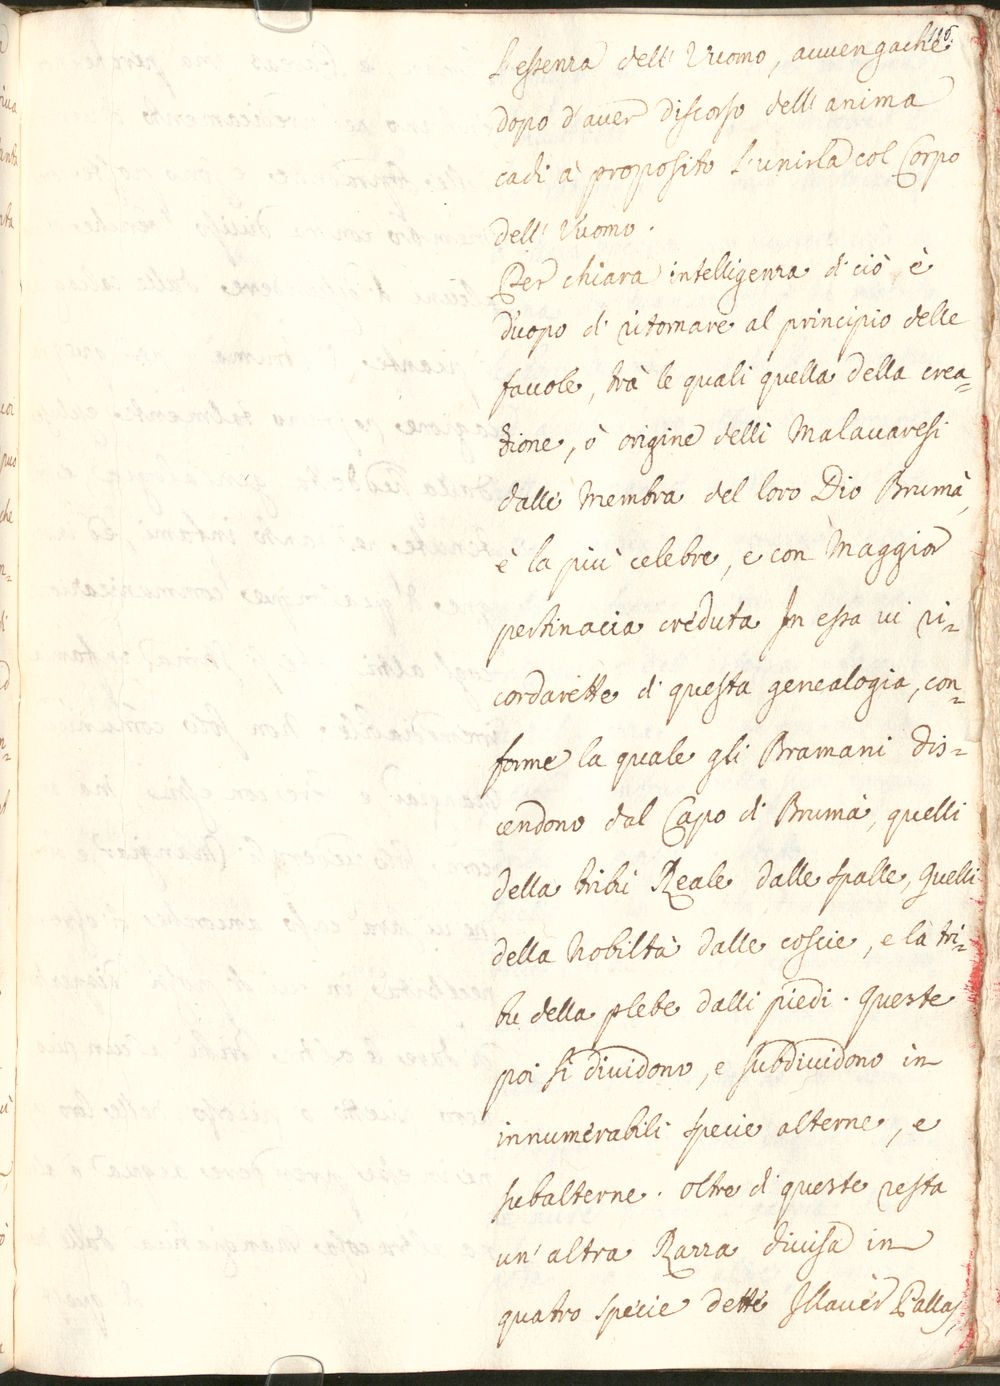 116.
L'essenza dell' Vuomo, auuengache
dopo d'auer discorso dell' anima
cadi à proposito L'unirla col Corpo
dell' Vuomo.
Per chiara intelligenza di ciò è
d'uopo di ritornare al principio delle
fauole, trà le quali quella della crea=
zione, ò origine delli Malauaresi
dalle Membra del loro Dio Brumà,
è la più celebre, e con Maggior
pertinacia creduta In essa ui ri=
cordarette di questa genealogia, con=
forme la quale gli Bramani dis=
cendono dal Capo di Brumà, quelli
della tribù Reale dalle spalle, quelli
della Nobiltà dalle coscie, e la tri=
bu della plebe dalli piedi. Queste
poi si diuidono, e subdiuidono in
innumerabili specie alterne, e
subalterne. Oltre di queste resta
un' altra Razza diuisa in
quatro specie dette Illauèr Pallas,